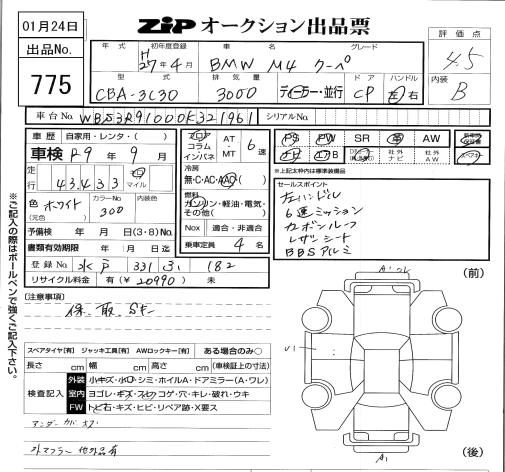 01月24日
ZIP オークション出品票
出品No.
775
年式 初年度登録 車名 グレード
H27年4月 BMW M4 クーペ
型式 排気量 ドア ハンドル
CBA-3C30 3000 ディーラー・並行 CP 左・右
評価点
4.5
内装
B
車台No. WBS3R91000K321961 シリアルNo.
車歴 自家用・レンタ・( )
車検 R9年9月
走行 43,433 キロ マイル
色 ホワイト カラーNo. 300 内装色
(元色)
予備検 年 月 日(3・8)No.
書類有効期限 年 月 日迄
登録No. 水戸 331 182
リサイクル料金 有(¥20990) 未
フロア コラム インパネ AT・MT 6速
冷房
無・C・AC・AAC
燃料
ガソリン・軽油・電気・その他( )
Nox 適合・非適合
乗車定員 4名
PS PW SR 革 AW
社外ナビ 社外AW
※上記太枠内は標準装備品
セールスポイント
左ハンドル
6速ミッション
カーボンルーフ
レザーシート
BBSアルミ
(注意事項)
スペアタイヤ[有] ジャッキ工具[有] AWロックキー[有] ある場合のみ○
長さ cm 幅 cm 高さ cm (車検証上の寸法)
検査記入
外装 小キズ・小凹・シミ・ホイルA・ドアミラー(A・ワレ)
室内 ヨゴレ・キズ・スレ・コゲ・穴・キレ・破れ・ウキ
FW トビ石・キズ・ヒビ・リペア跡・X要ス
外マフラー 他外品有
(前)
U1
A1
(後)
※ご記入の際はボールペンで強くご記入下さい。